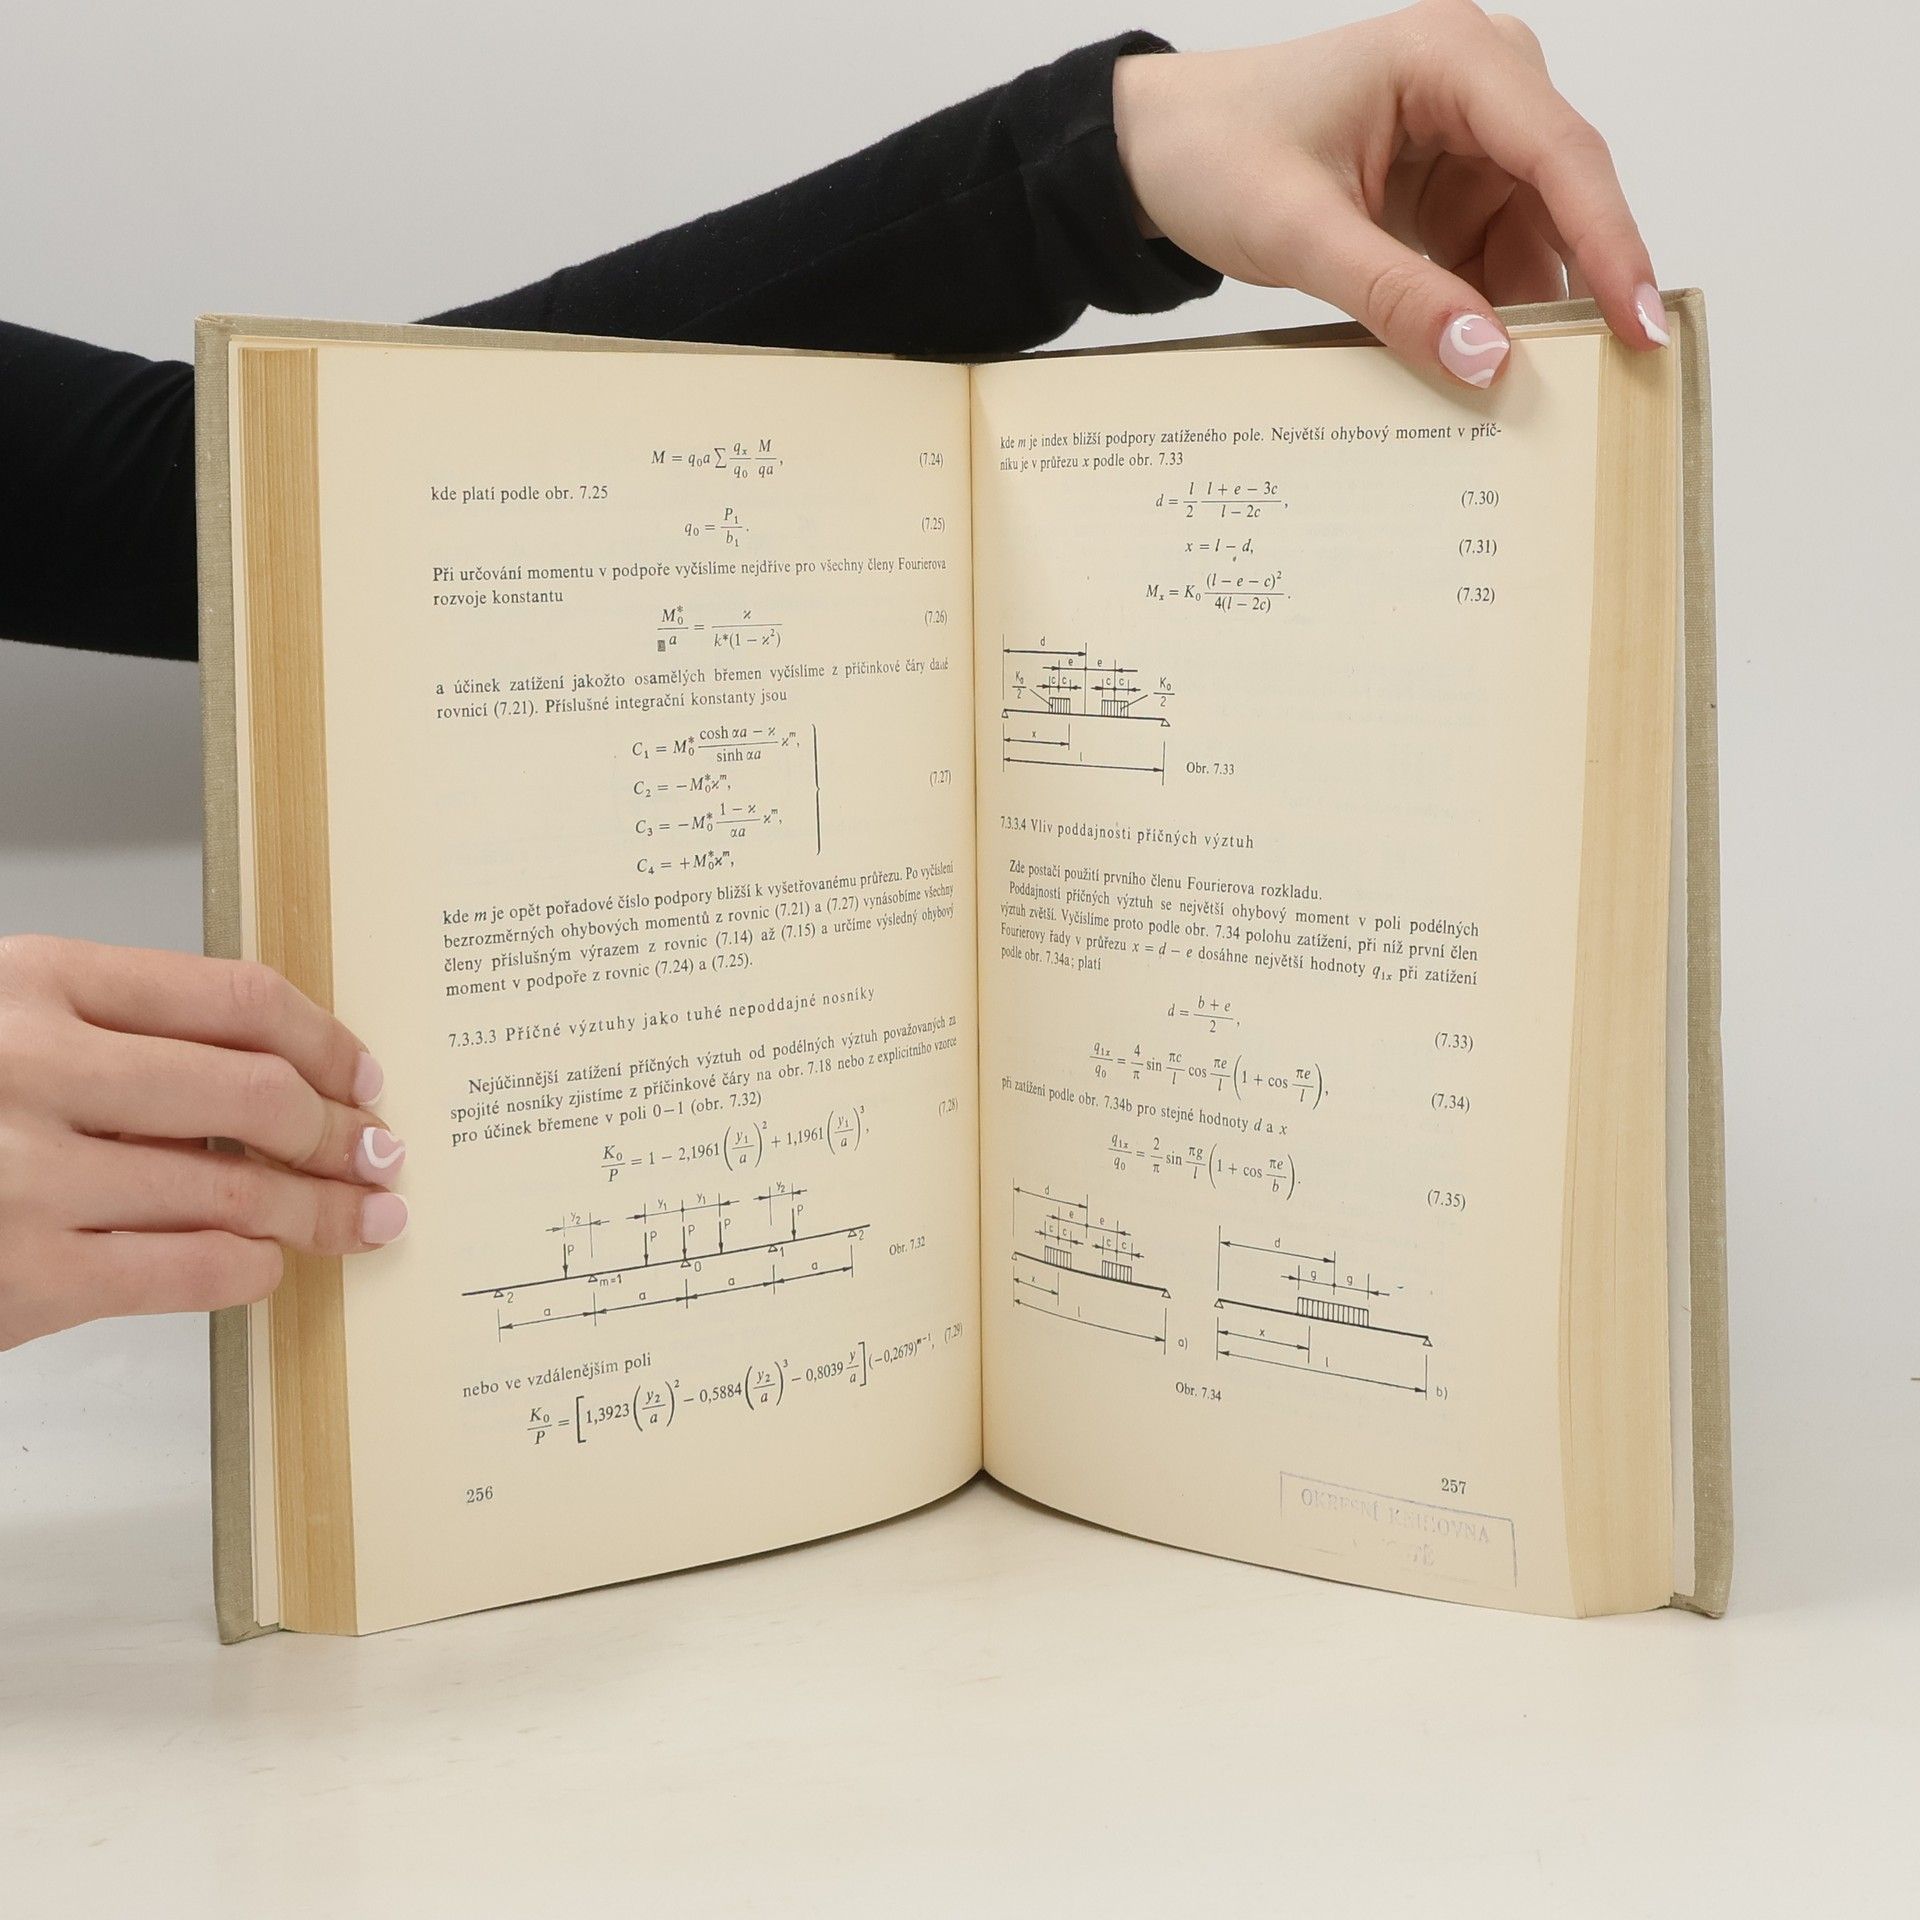 M = q₀a ∑ qₓ/q₀ M/qa, (7.24)
kde platí podle obr. 7.25
q₀ = P₁/b₁. (7.25)
Při určování momentu v podpoře vyčíslíme nejdříve pro všechny členy Fourierova
rozvoje konstantu
M₀*/a = ϰ/k*(1 − ϰ²) (7.26)
a účinek zatížení jakožto osamělých břemen vyčíslíme z příčinkové čáry dané
rovnicí (7.21). Příslušné integrační konstanty jsou
C₁ = M₀* (cosh αa − ϰ)/(sinh αa) ϰᵐ,
C₂ = −M₀*ϰᵐ, (7.27)
C₃ = −M₀* (1 − ϰ)/(αa) ϰᵐ,
C₄ = +M₀*ϰᵐ,
kde m je opět pořadové číslo podpory bližší k vyšetřovanému průřezu. Po vyčíslení
bezrozměrných ohybových momentů z rovnic (7.21) a (7.27) vynásobíme všechny
členy příslušným výrazem z rovnic (7.14) až (7.15) a určíme výsledný ohybový
moment v podpoře z rovnic (7.24) a (7.25).
7.3.3.3 Příčné výztuhy jako tuhé nepoddajné nosníky
Nejúčinnější zatížení příčných výztuh od podélných výztuh považovaných za
spojité nosníky zjistíme z příčinkové čáry na obr. 7.18 nebo z explicitního vzorce
pro účinek břemene v poli 0−1 (obr. 7.32)
K₀/P = 1 − 2,1961 (y₁/a)² + 1,1961 (y₁/a)³, (7.28)
y₂ y₁ y₁ y₂
P P P P P
2 m=1 0 1 2
a a a a
Obr. 7.32
nebo ve vzdálenějším poli
K₀/P = [1,3923 (y₂/a)² − 0,5884 (y₂/a)³ − 0,8039 y/a] (−0,2679)ᵐ⁻¹, (7.29)
256
kde m je index bližší podpory zatíženého pole. Největší ohybový moment v příč-
níku je v průřezu x podle obr. 7.33
d = l/2 (l + e − 3c)/(l − 2c), (7.30)
x = l − d, (7.31)
Mₓ = K₀ (l − e − c)²/4(l − 2c). (7.32)
d
e e
K₀/2 c c c c K₀/2
x
l
Obr. 7.33
7.3.3.4 Vliv poddajnosti příčných výztuh
Zde postačí použití prvního členu Fourierova rozkladu.
Poddajností příčných výztuh se největší ohybový moment v poli podélných
výztuh zvětší. Vyčíslíme proto podle obr. 7.34 polohu zatížení, při níž první člen
Fourierovy řady v průřezu x = d − e dosáhne největší hodnoty q₁ₓ při zatížení
podle obr. 7.34a; platí
d = (b + e)/2, (7.33)
q₁ₓ/q₀ = 4/π sin πc/l cos πe/l (1 + cos πe/l), (7.34)
při zatížení podle obr. 7.34b pro stejné hodnoty d a x
q₁ₓ/q₀ = 2/π sin πg/l (1 + cos πe/b). (7.35)
d
e e
c c c c
x
l
a)
d
g g
x
l
b)
Obr. 7.34
257
OKRESNÍ KNIHOVNA